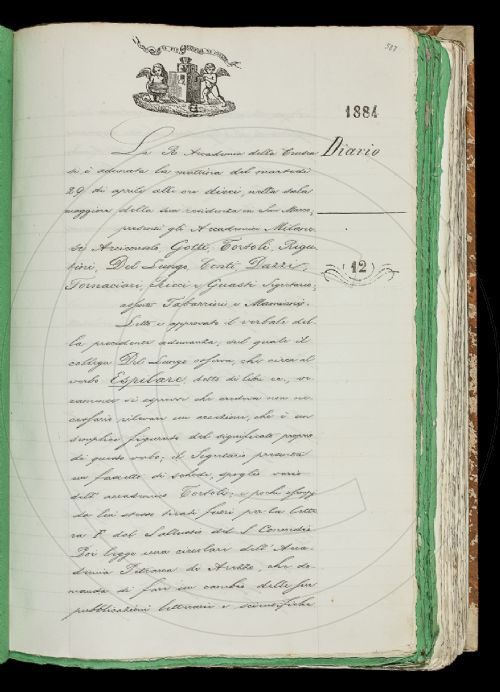 1884
Diario
12
La R. Accademia della Crusca
si è adunata la mattina del martedì
29 di aprile alle ore dieci, nella sala
maggiore della sua residenza in San Marco,
presenti gli Accademici Milane-
si, Arciconsolo, Gotti, Tortoli, Rigu-
tini, Del Lungo, Conti, Dazzi,
Fornaciari, Ricci e Guasti Segretario;
assenti Tabarrini e Mamiani.
Letto e approvato il verbale del-
la precedente adunanza, del quale il
collega Del Lungo osserva, che circa al
verbo Espilare, detto di libri ec.,
si espresse che credeva non ne-
cessario rilevare un accezione, che è un
semplice figurato del significato proprio
di questo verbo; il Segretario presenta
un fascetto di schede, spoglio vario
dell'accademico Tortoli; e pochi
da lui stesso tirati fuori per la lette-
ra F dal
Poi legge una circolare dell'Acca-
demia Petrarca di Arezzo, che do-
manda di fare un cambio delle sue
pubblicazioni letterarie e scientifiche